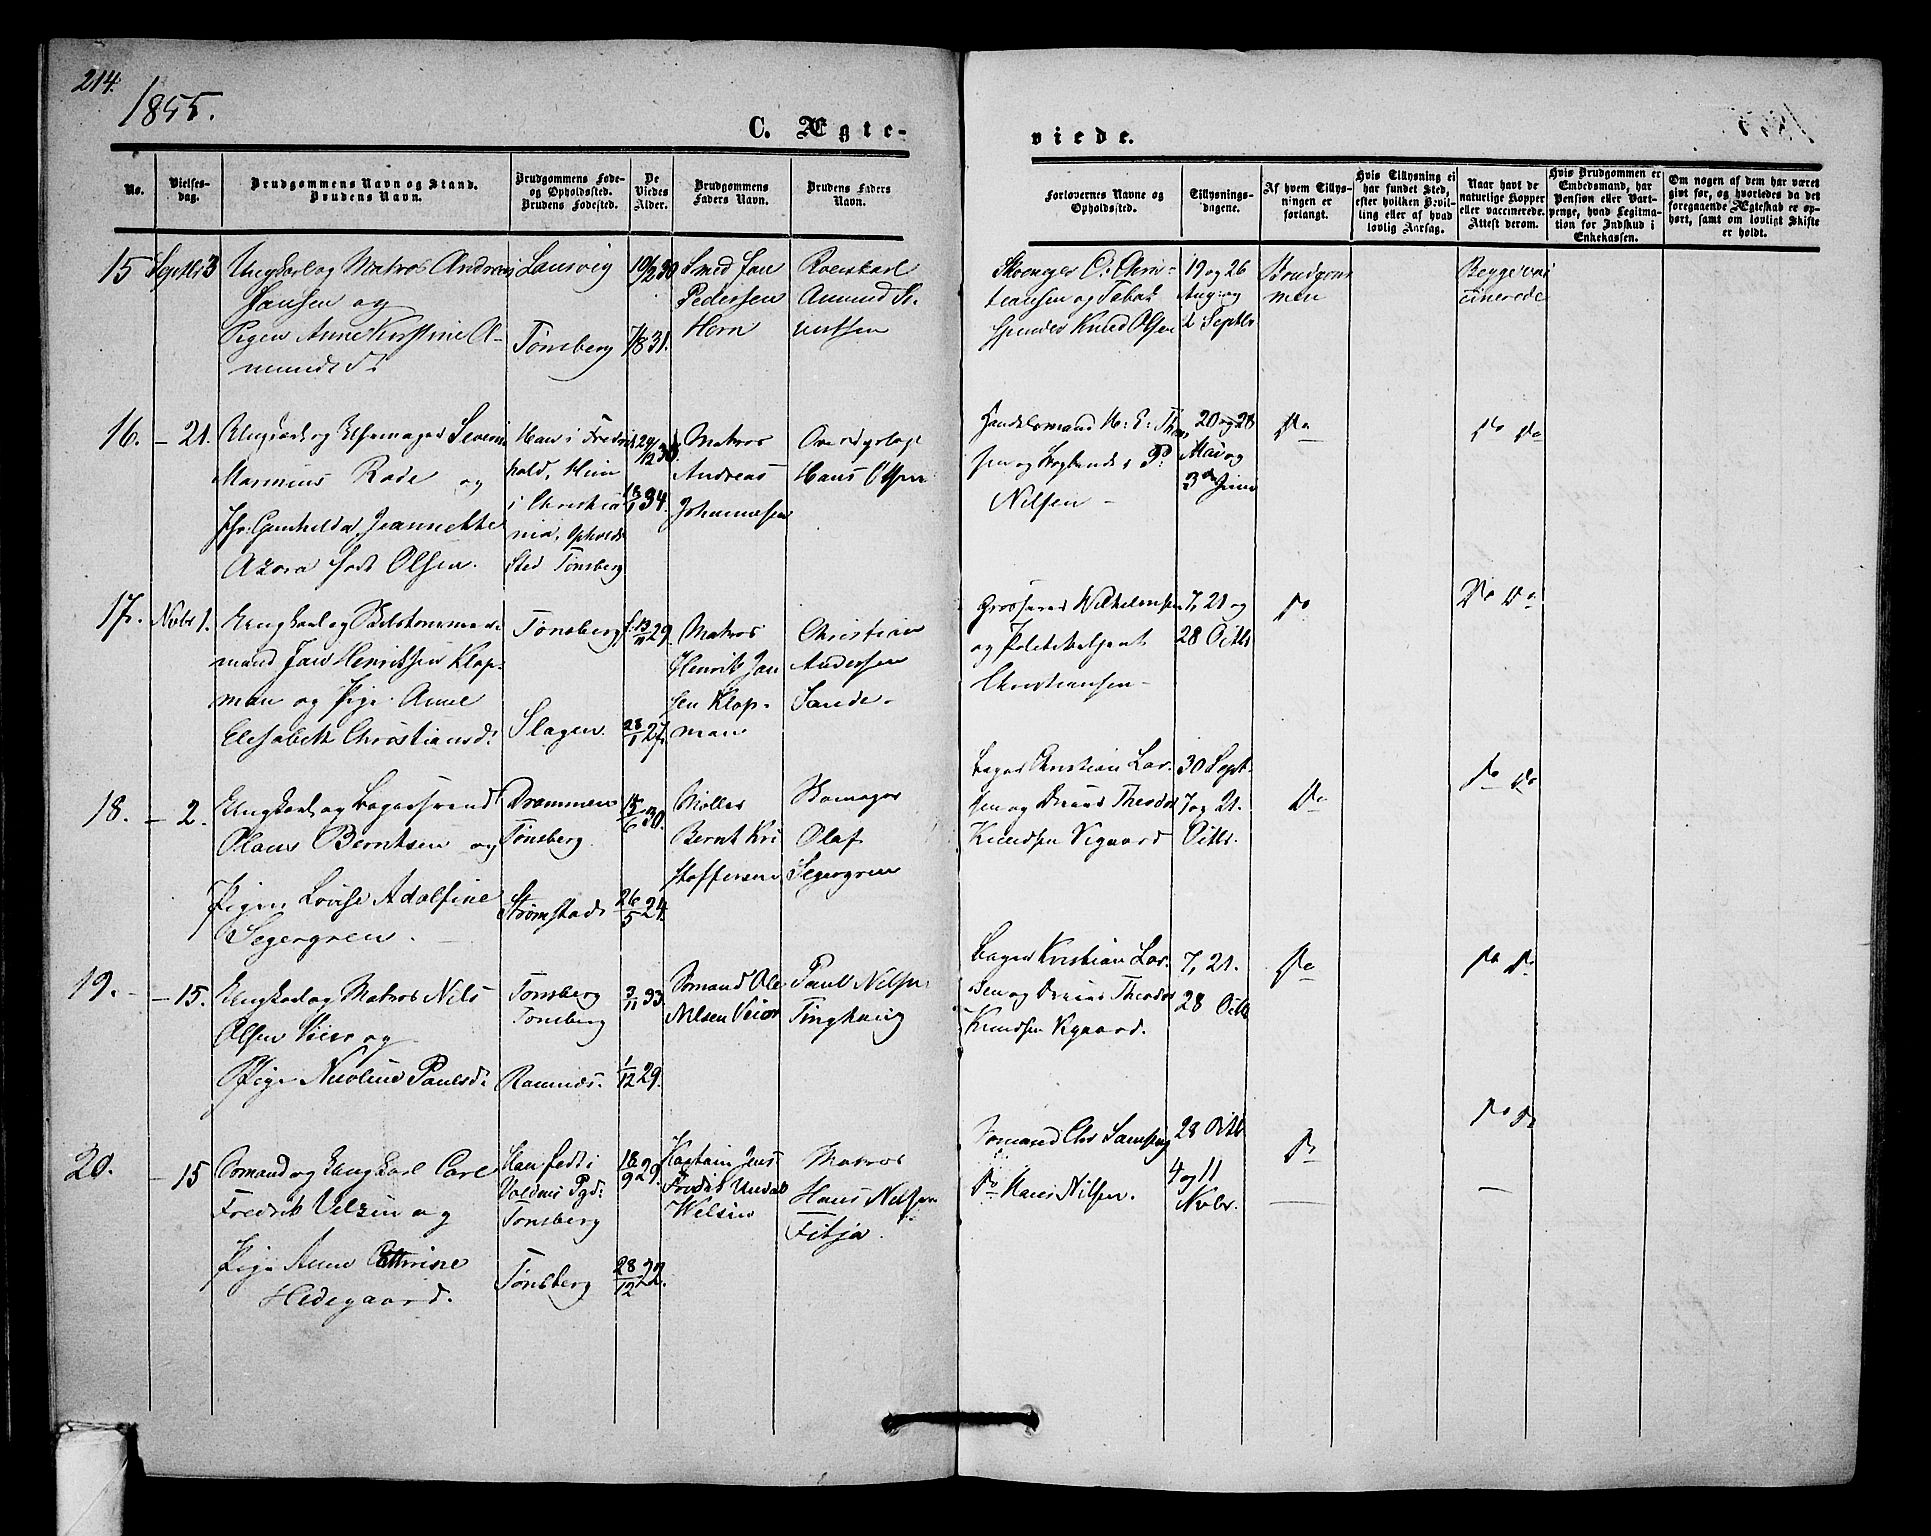 214.
1855.
C. Ægte-
viede.
No.
Vielses-
dag.
Brudgommens Navn og Stand.
Brudens Navn.
Brudgommens Føde-
og Opholdssted.
Brudens Fødested.
De
Viedes
Alder.
Brudgommens
Faders Navn.
Brudens Faders
Navn.
Forlovernes Navne og
Opholdssted.
Tillysnings-
dagene.
Af hvem Tillys-
ningen er
forlangt.
Hvis Tillysning ei
har fundet Sted,
efter hvilken Bevil-
ling eller af hvad
lovlig Aarsag.
Naar havt de
naturlige Kopper
eller vaccinerede.
Attest derom.
Hvis Brudgommen er
Embedsmand, har
Pension eller Vart-
penge, hvad Legitima-
tion for Indskud i
Enkekassen.
Om nogen af dem har været
gift før, og hvorledes da det
foregaaende Ægteskab er op-
hørt, samt om lovligt Skifte
er holdt.
15
Septbr 3
Ungkarl og Matros Andreas
Hansen og
Pigen Anne Kirstine A-
mundsd:
Laurvig
Tønsberg
10/2 30
7/8 31.
Smed Jan
Pedersen
Horn
Amund
Christ-
iansen og Tobak
spinder Knud Olsen
19 og 26
Aug: og
2 Septbr
Brudgom
men
Begge vac
cinerede
16.
- 21.
Ungkarl og Severin
Marinius Rode og
Jfr: Gunhilda Jeannette
Azora født Olsen.
Han i Fredriks
hald, Hun
i Christia
nia, Opholds
sted Tønsberg
29/12
18/1 34.
Matros
Andreas
Johannesen
Hans Olsen
Handelsmand H. E. Than
sen og P:
Nilsen -
20 og 28
Mai og
3de Juni
Do
Do Do
17.
Novbr 1.
Ungkarl og
mand Jan Henriksen Klop-
man og Pige Anne
Elisabeth Christiansd:
Tønsberg
Slagen
29.
28/1 27.
Matros
Henrik Jan
sen Klop-
man
Christian
Andersen
Sande.
Grosserer Wilhelmsen
og Politibetjent
Christiansen -
7, 21 og
28 Octbr
Do
Do Do
18.
- 2.
Ungkarl og Bagersvend
Olaus Berntsen og
Pigen Lovise Adolfine
Segergren.
Drammen
Tønsberg
Strømstad
15/6 30.
26/5 24.
Møller
Bernt Kri
stoffersen
Skomager
Olaf
Segergren
Bager Christian Lar-
sen og Theodor
Knudsen Vegaard
30 Sept.
7 og 21.
Octbr.
Do
Do Do
19.
- 15.
Ungkarl og Matros Nils
Olsen Veier og
Pige Nicoline Paulsd:
Tønsberg
Tønsberg
Ramnes.
3/11 33.
1/12 29.
Sømand Ole
Nilsen Veier
Paul Nilsen
Tinghaug
Bager Kristian Lar-
sen og Theodor
Knudsen Vegaard.
7, 21.
28 Octbr
Do
Do Do
20.
- 15
Sømand og Ungkarl Carl
Fredrik Velsin og
Pige Anne Cathrine
Hedegaard.
Han født i
Voldens Pgd:
Tønsberg
Tønsberg
18/9 29.
28/12 22.
Kaptain Jens
Fredrik
Welsin
Matros
Hans Nilsen
Fitje.
Sømand Chr Samsing
Do Hans Nilsen.
28 Octbr
4 og 11
Novbr.
Do
Do Do